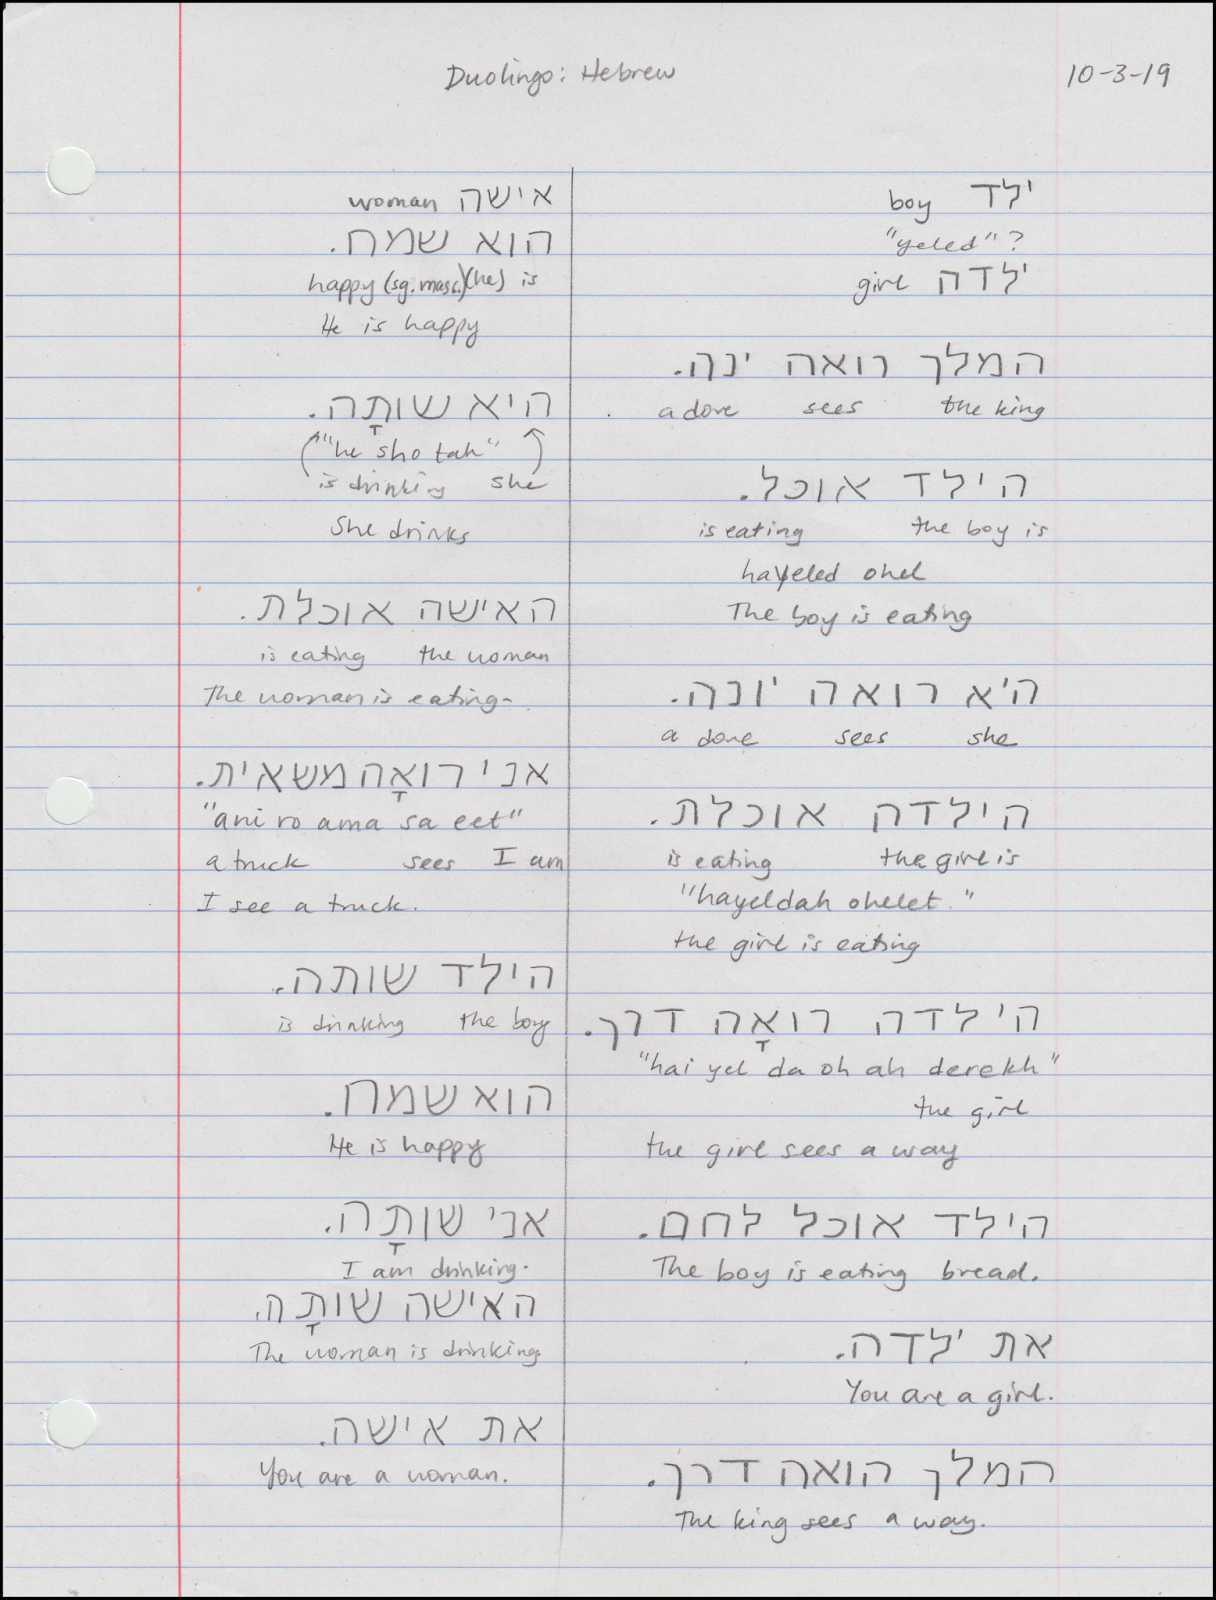 Duolingo: Hebrew
10-3-19
ילד boy
"yeled"?
ילדה girl
המלך רואה ינה.
a dove sees the king
הילד אוכל.
is eating the boy is
hayeled ohel
The boy is eating
היא רואה יונה.
a dove sees she
הילדה אוכלת.
is eating the girl is
"hayeldah ohelet."
the girl is eating
הילדה רואָה דרך.
"hai yel da oh ah derekh"
the girl
the girl sees a way
הילד אוכל לחם.
The boy is eating bread.
את ילדה.
You are a girl.
המלך הואה דרך.
The king sees a way.
אישה woman
הוא שמח.
happy (sg. masc.) (he) is
He is happy
היא שותָה.
"he sho tah"
is drinking she
She drinks
האישה אוכלת.
is eating the woman
The woman is eating.
אני רואָה משאית.
"ani ro ama sa eet"
a truck sees I am
I see a truck.
הילד שותה.
is drinking the boy
הוא שמח.
He is happy
אני שותָה.
I am drinking.
האישה שותָה.
The woman is drinking.
את אישה.
You are a woman.